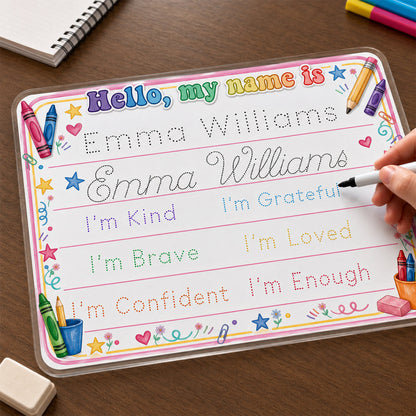 Hello, my name is
Emma Williams
Emma Williams
I'm Kind I'm Grateful
I'm Brave I'm Loved
I'm Confident I'm Enough